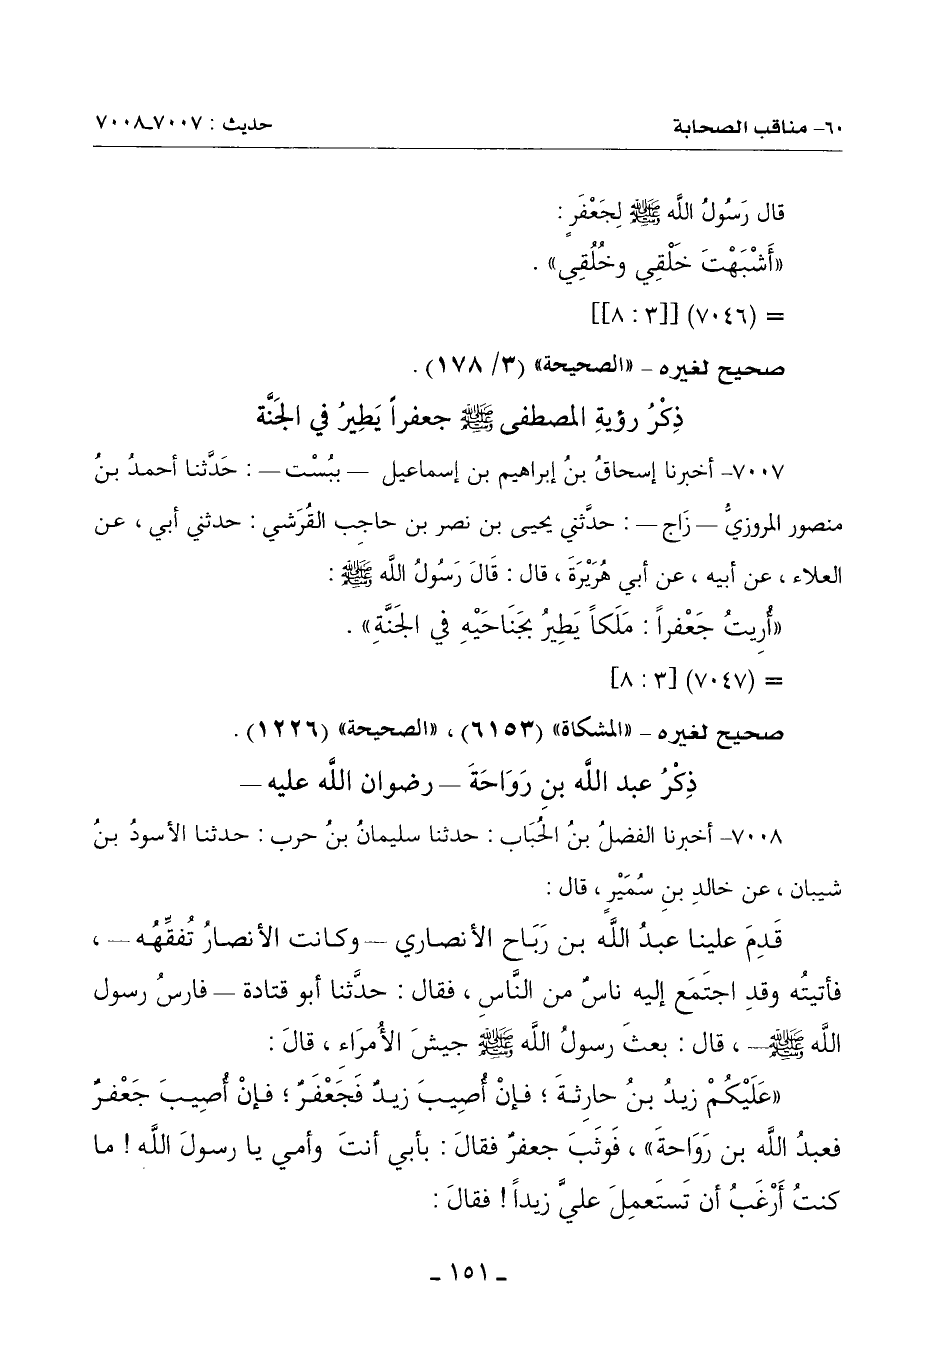 ٦٠- مناقب الصحابة حديث : ٧٠٠٧ـ٧٠٠٨
قال رَسُولُ اللَّه ﷺ لِجَعْفَرٍ :
«أَشْبَهْتَ خَلْقِي وخُلُقِي» .
= (٧٠٤٦) [[٣ : ٨]]
صحيح لغيره – «الصحيحة» (٣/ ١٧٨) .
ذِكْرُ رؤيةِ المصطفى ﷺ جعفراً يَطِيرُ في الجَنَّة
٧٠٠٧– أخبرنا إسحاقُ بنُ إبراهيم بن إسماعيل – بِبُسْت – : حَدَّثنا أحمدُ بنُ
منصور المروزيُّ – زَاج – : حدَّثني يحيى بن نصر بن حاجب القُرَشي : حدثني أبي ، عن
العلاء ، عن أبيه ، عن أبي هُرَيْرَةَ ، قال : قَالَ رَسُولُ اللَّه ﷺ :
«أُرِيتُ جَعْفراً : مَلَكاً يَطِيرُ بجَنَاحَيْهِ في الجَنَّةِ» .
= (٧٠٤٧) [٣ : ٨]
صحيح لغيره – «المشكاة» (٦١٥٣) ، «الصحيحة» (١٢٢٦) .
ذِكْرُ عبد اللَّه بنِ رَوَاحَةَ – رضوان اللَّه عليه –
٧٠٠٨– أخبرنا الفضلُ بنُ الحُبَاب : حدثنا سليمانُ بنُ حرب : حدثنا الأسودُ بنُ
شيبان ، عن خالدِ بنِ سُمَيْرٍ ، قال :
قَدِمَ علينا عبدُ اللَّه بن رَبَاح الأنصاري – وكانت الأنصارُ تُفقِّهُه – ،
فأتيتُه وقدِ اجتمَع إليه ناسٌ من النَّاسِ ، فقال : حدَّثنا أبو قتادة – فارسُ رسول
اللَّه ﷺ – ، قال : بعثَ رسولُ اللَّه ﷺ جيشَ الأُمرَاء ، قالَ :
«عَلَيْكُمْ زيدُ بنُ حارثةَ ؛ فإنْ أُصيبَ زيدٌ فَجَعْفَرٌ ؛ فإنْ أُصِيبَ جَعْفرٌ
فعبدُ اللَّه بن رَوَاحةَ» ، فَوثَبَ جعفرٌ فقالَ : بأبي أنتَ وأمي يا رسولَ اللَّه ! ما
كنتُ أرْغَبُ أن تَستَعمِلَ عليَّ زيداً ! فقالَ :
- ١٥١ -